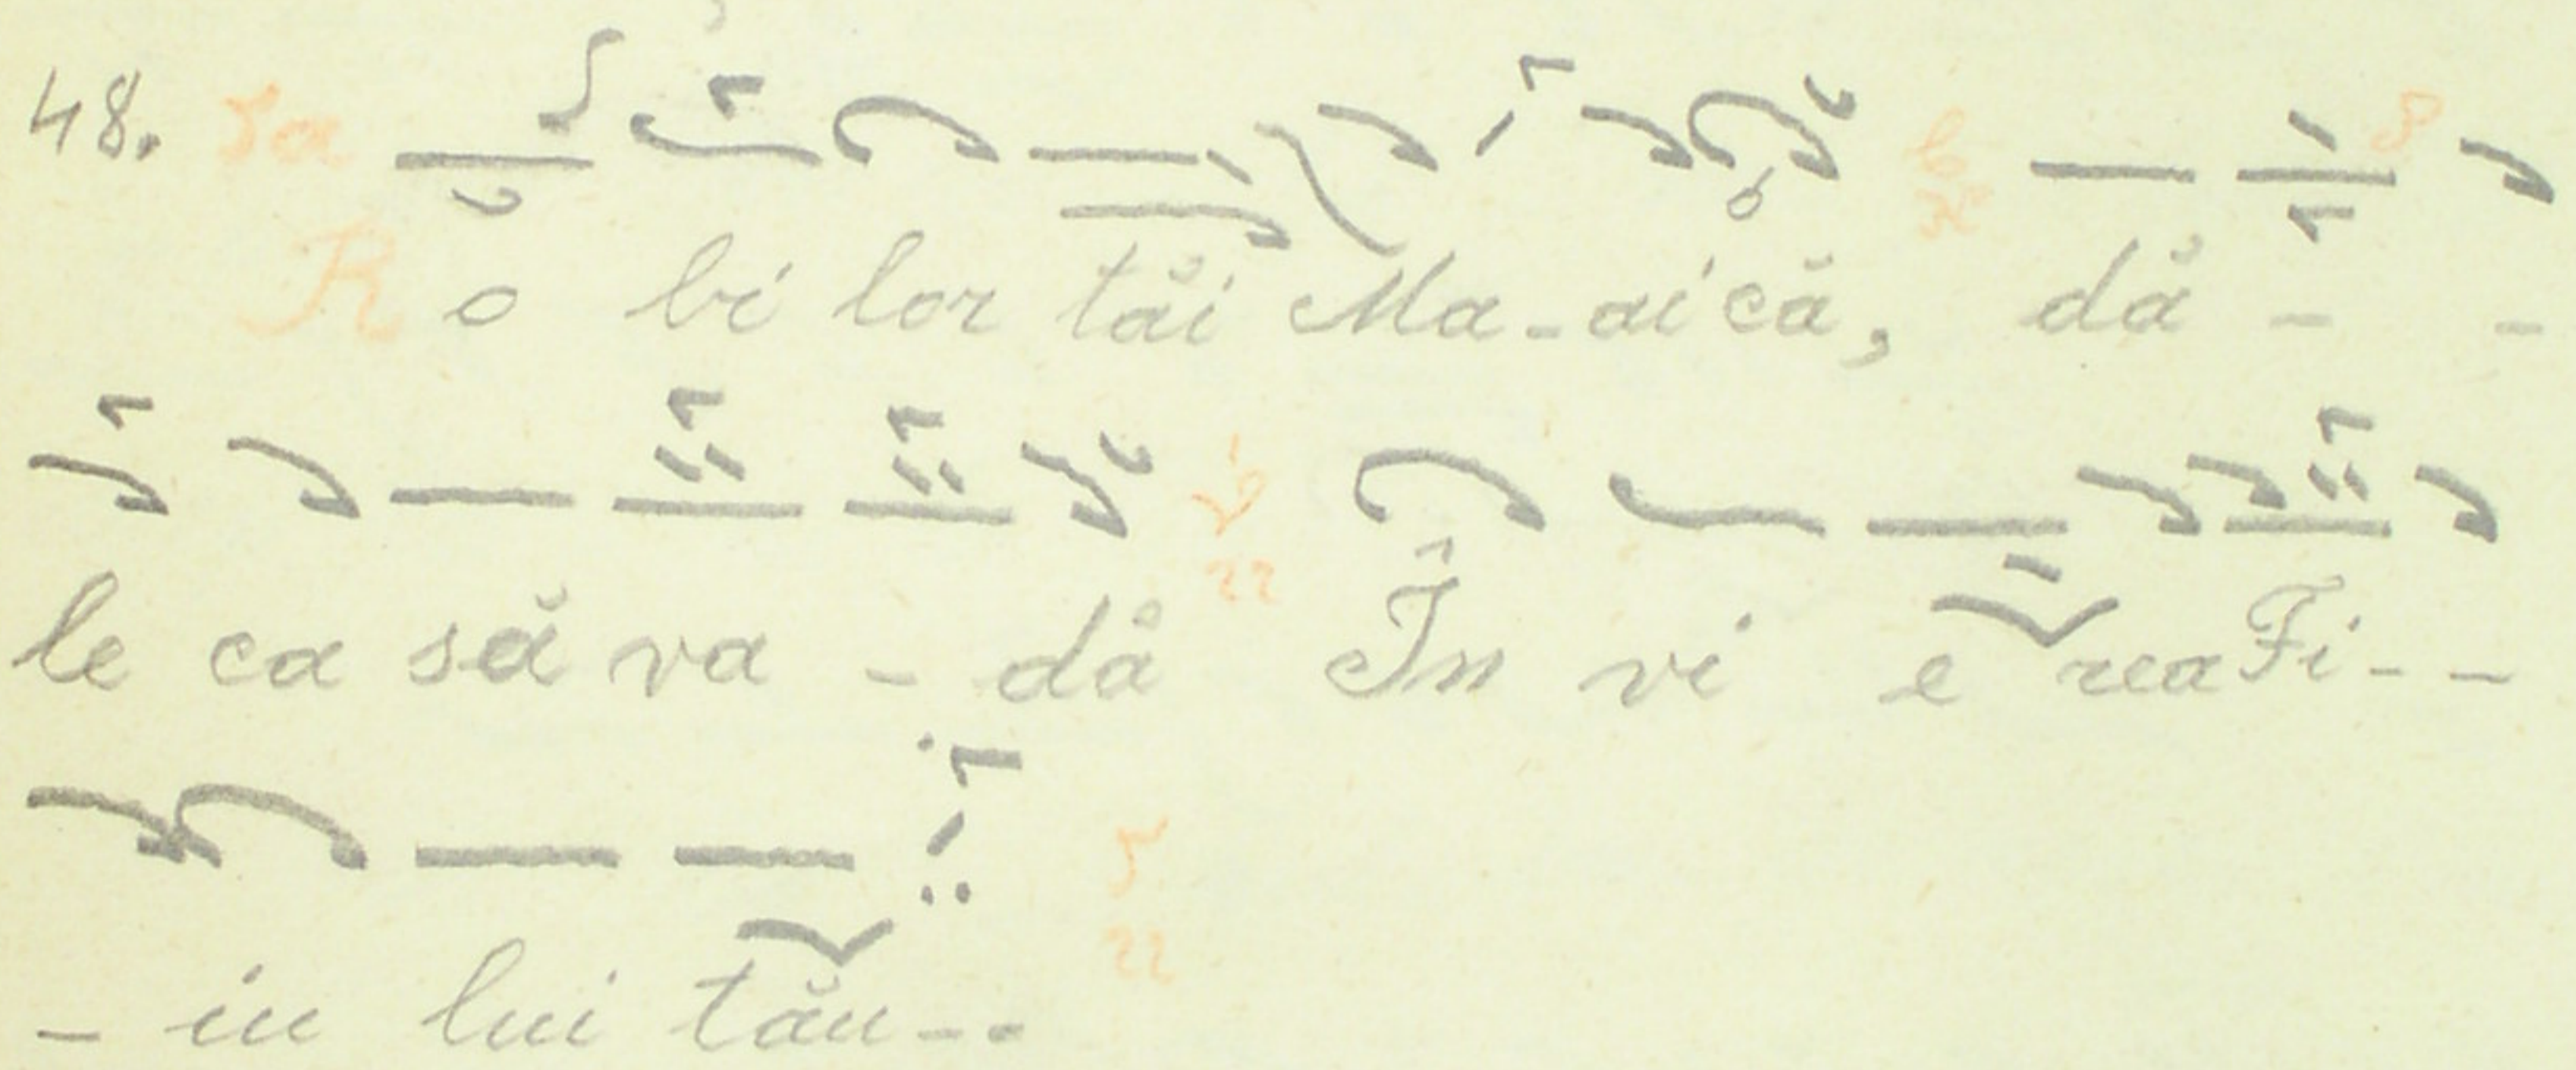 48. Ro bi lor tăi Ma-aică, dă - -
le ca să va - dă În vi e rea Fi - -
- iu lui tău - -